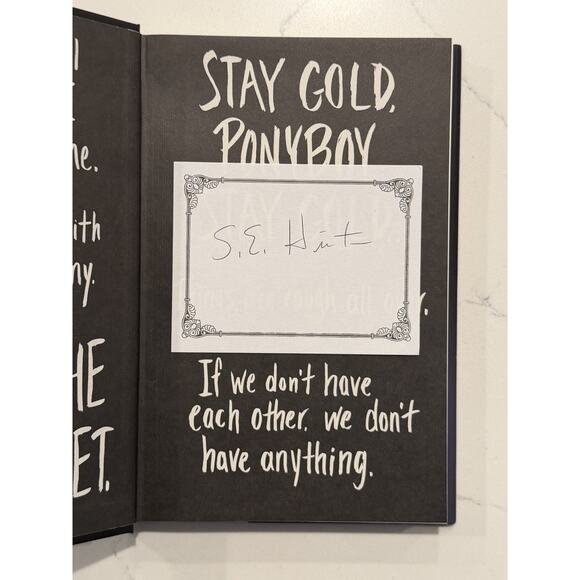 ne.
ith
ny.
HE
ET.
STAY GOLD,
PONYBOY
STAY GOLD...
S.E. Hinton
Things are rough all over.
If we don't have
each other, we don't
have anything.